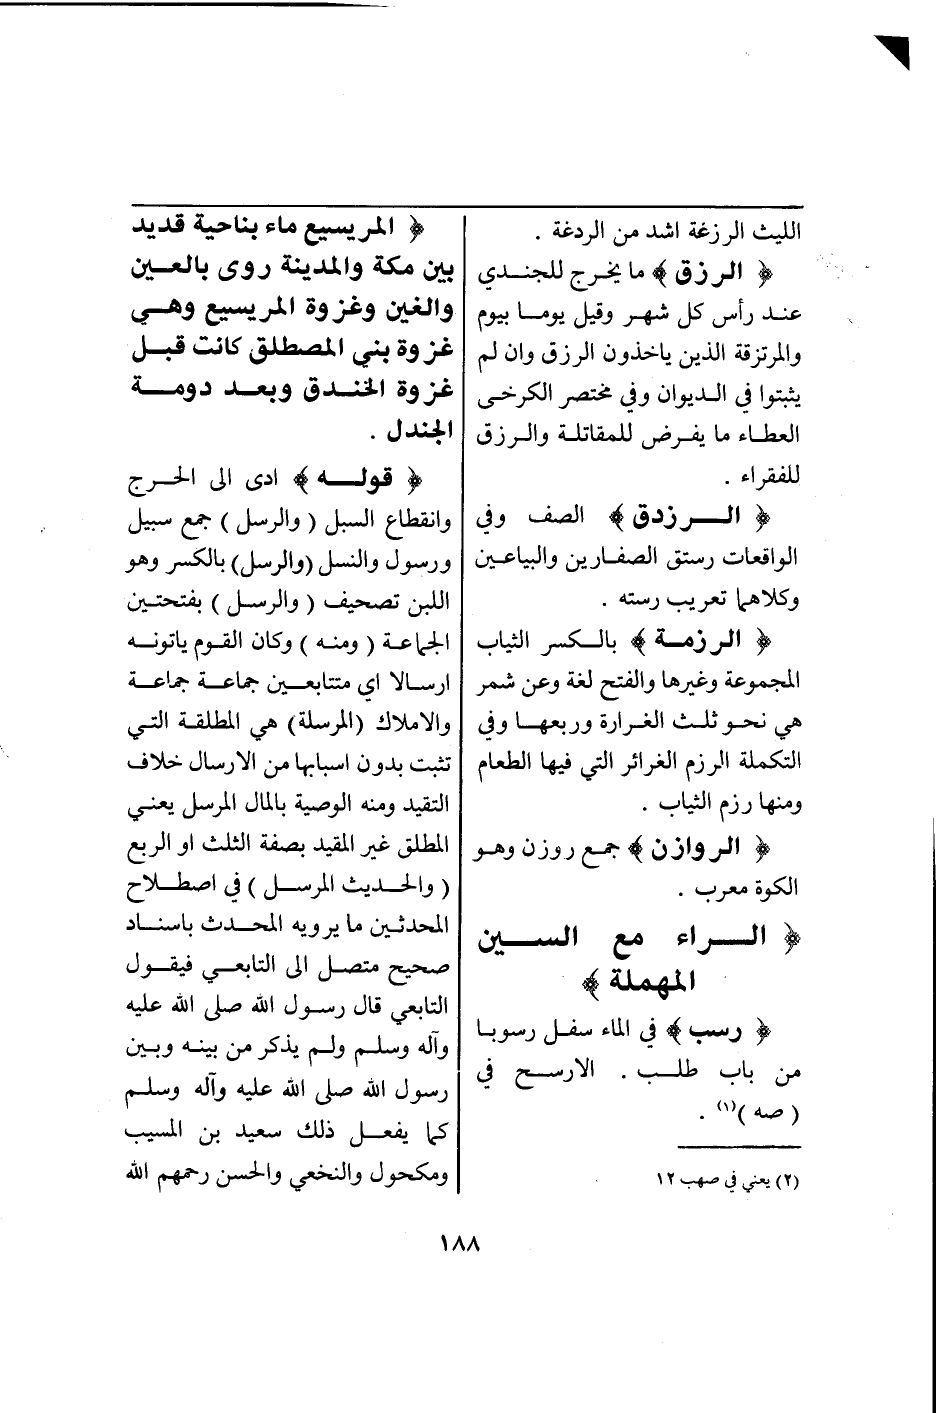 الليث الرزغة اشد من الردغة .
﴿ الرزق ﴾ ما يخرج للجندي
عند رأس كل شهر وقيل يوما بيوم
والمرتزقة الذين ياخذون الرزق وان لم
يثبتوا في الديوان وفي مختصر الكرخى
العطاء ما يفرض للمقاتلة والرزق
للفقراء .
﴿ الرزدق ﴾ الصف وفي
الواقعات رستق الصفارين والبياعين
وكلاهما تعريب رسته .
﴿ الرزمة ﴾ بالكسر الثياب
المجموعة وغيرها والفتح لغة وعن شمر
هي نحو ثلث الغرارة وربعها وفي
التكملة الرزم الغرائر التي فيها الطعام
ومنها رزم الثياب .
﴿ الروازن ﴾ جمع روزن وهو
الكوة معرب .
﴿ الراء مع السين
المهملة ﴾
﴿ رسب ﴾ في الماء سفل رسوبا
من باب طلب . الارسح في
( صه )(١) .
(٢) يعني في صهب ١٢
﴿ المريسيع ماء بناحية قديد
بين مكة والمدينة روى بالعين
والغين وغزوة المريسيع وهي
غزوة بني المصطلق كانت قبل
غزوة الخندق وبعد دومة
الجندل .
﴿ قوله ﴾ ادى الى الحرج
وانقطاع السبل ( والرسل ) جمع سبيل
ورسول والنسل (والرسل) بالكسر وهو
اللبن تصحيف ( والرسل ) بفتحتين
الجماعة ( ومنه ) وكان القوم ياتونه
ارسالا اي متتابعين جماعة جماعة
والاملاك (المرسلة) هي المطلقة التي
تثبت بدون اسبابها من الارسال خلاف
التقيد ومنه الوصية بالمال المرسل يعني
المطلق غير المقيد بصفة الثلث او الربع
( والحديث المرسل ) في اصطلاح
المحدثين ما يرويه المحدث باسناد
صحيح متصل الى التابعي فيقول
التابعي قال رسول الله صلى الله عليه
وآله وسلم ولم يذكر من بينه وبين
رسول الله صلى الله عليه وآله وسلم
كما يفعل ذلك سعيد بن المسيب
ومكحول والنخعي والحسن رحمهم الله
١٨٨